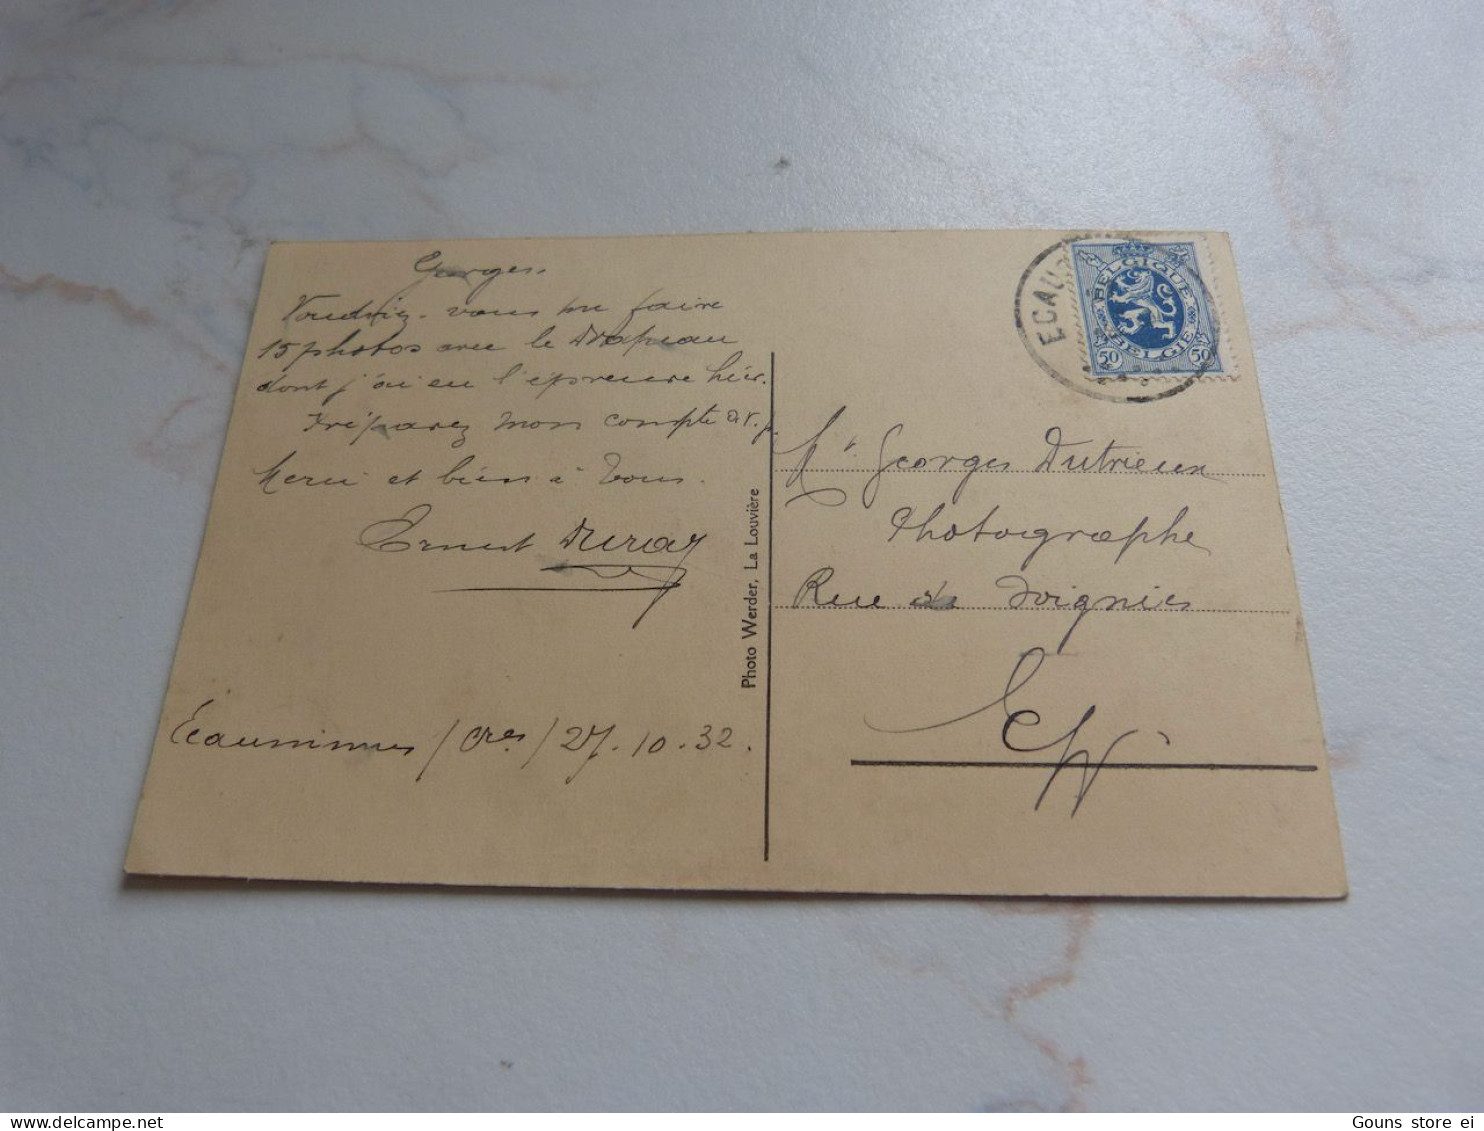 Georges.
Voudriez-vous me faire
15 photos avec le Drapeau
dont j'ai eu l'épreuve hier.
Préparez mon compte a.v.p.
Merci et bien à Vous.
Ernest Duray
Écaussinnes / Cres / 27.10.32.
Photo Werder, La Louvière
ECAU
BELGIQUE
BELGIË
50 50
Mr Georges Dutrieux
Photographe
Rue de Soignies
EV
Gouns store ei